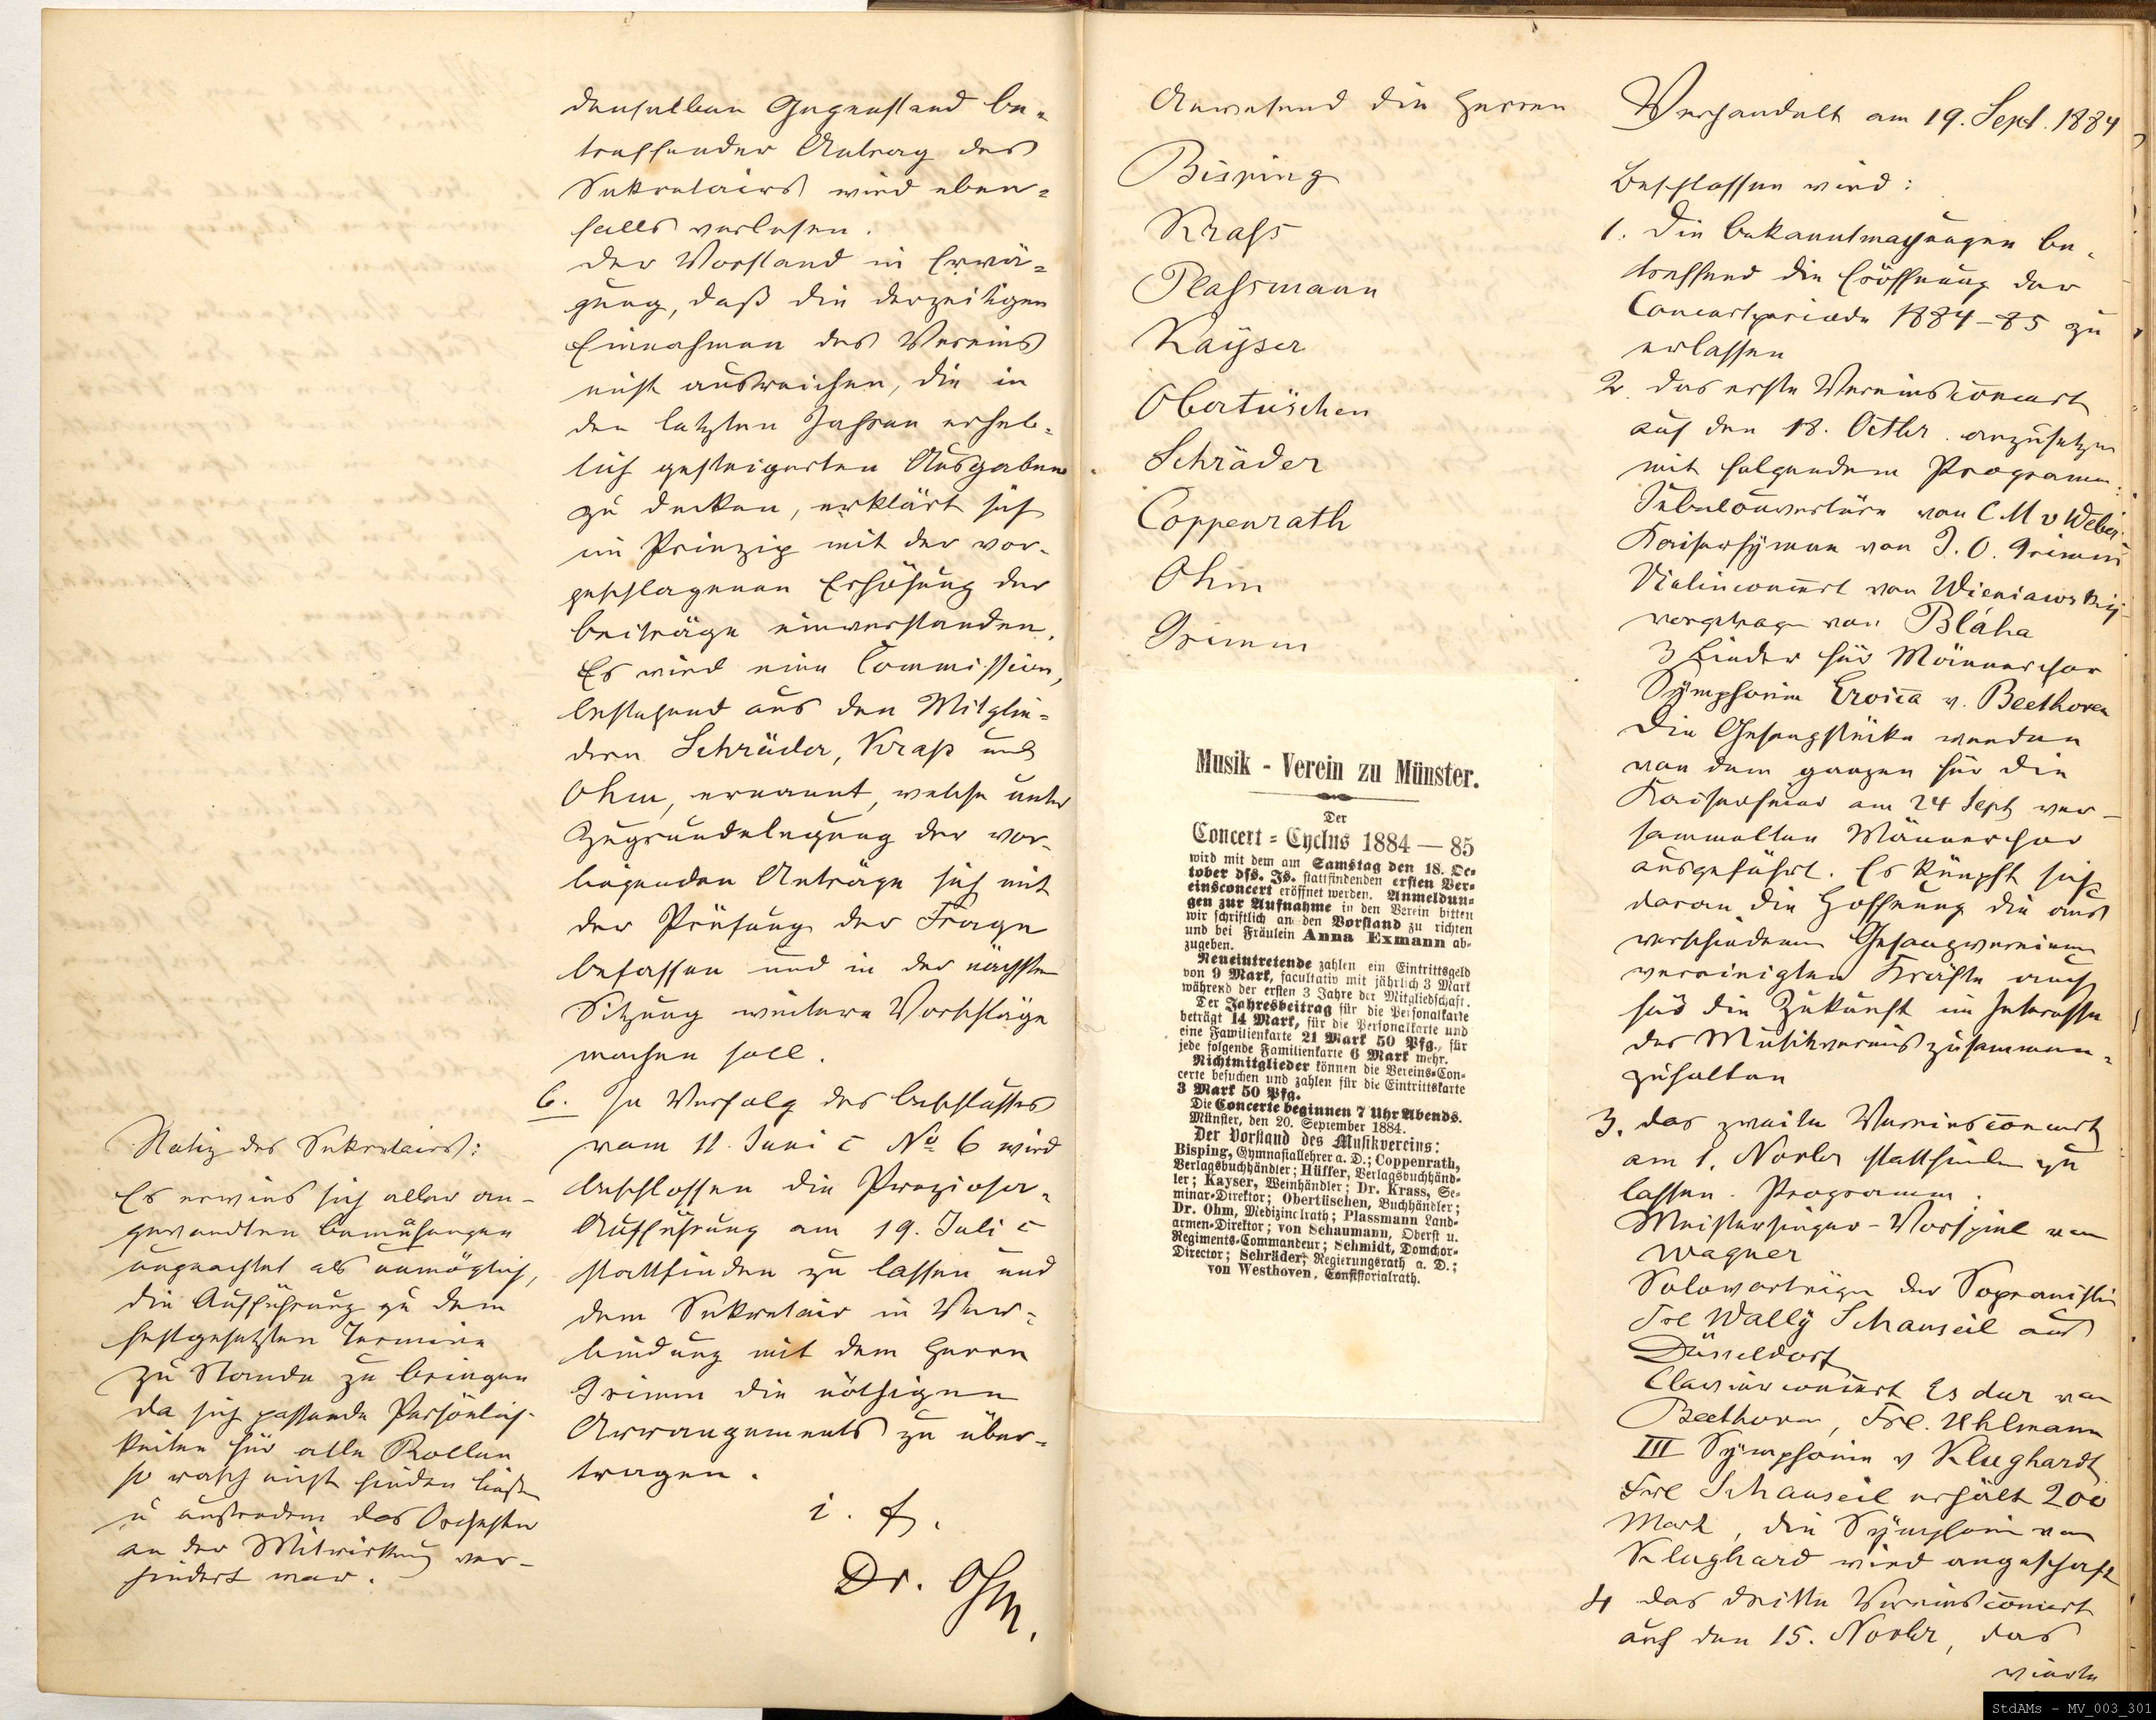 denselben Gegenstand be-
treffender Antrag des
Sekretairs wird eben-
falls verlesen.
Der Vorstand in Erwä-
gung, daß die derzeitigen
Einnahmen des Vereins
nicht ausreichen, die in
den letzten Jahren erheb-
lich gesteigerten Ausgaben
zu decken, erklärt sich
im Prinzip mit der vor-
geschlagenen Erhöhung der
Beiträge einverstanden.
Es wird eine Commission,
bestehend aus den Mitglie-
dern Schräder, Kraß und
Ohm, ernannt, welche unter
Zugrundelegung der vor-
liegenden Anträge sich mit
der Prüfung der Frage
befassen und in der nächsten
Sitzung weitere Vorschläge
machen soll.
6. In Verfolg des Beschlusses
vom 11. Juni c No 6 wird
beschlossen die Preziosa-
Aufführung am 19. Juli c
stattfinden zu lassen und
dem Sekretair in Ver-
bindung mit dem Herrn
Grimm die nöthigen
Arrangements zu über-
tragen.
i. f.
Dr. Ohm.
Notiz des Sekretairs:
Es erwies sich aller an-
gewandten Bemühungen
ungeachtet als unmöglich,
die Aufführung zu dem
festgesetzten Termine
zu Stande zu bringen
da sich passende Persönlich-
keiten für alle Rollen
so rasch nicht finden ließen
u außerdem das Orchester
an der Mitwirkung ver-
hindert war.
Anwesend die Herren
Bisping
Krass
Plassmann
Kayser
Obertüschen
Schräder
Coppenrath
Ohm
Grimm
Musik - Verein zu Münster.
Der
Concert = Cyclus 1884 — 85
wird mit dem am Samstag den 18. Oc-
tober dss. Js. stattfindenden ersten Ver-
einsconcert eröffnet werden. Anmeldun-
gen zur Aufnahme in den Verein bitten
wir schriftlich an den Vorstand zu richten
und bei Fräulein Anna Exmann ab-
zugeben.
Neueintretende zahlen ein Eintrittsgeld
von 9 Mark, facultativ mit jährlich 3 Mark
während der ersten 3 Jahre der Mitgliedschaft.
Der Jahresbeitrag für die Personalkarte
beträgt 14 Mark, für die Personalkarte und
eine Familienkarte 21 Mark 50 Pfg., für
jede folgende Familienkarte 6 Mark mehr.
Nichtmitglieder können die Vereins-Con-
certe besuchen und zahlen für die Eintrittskarte
3 Mark 50 Pfg.
Die Concerte beginnen 7 Uhr Abends.
Münster, den 20. September 1884.
Der Vorstand des Musikvereins:
Bisping, Gymnasiallehrer a. D.; Coppenrath,
Verlagsbuchhändler; Hüffer, Verlagsbuchhänd-
ler; Kayser, Weinhändler; Dr. Krass, Se-
minar-Direktor; Obertüschen, Buchhändler;
Dr. Ohm, Medizinalrath; Plassmann Land-
armen-Direktor; von Schaumann, Oberst u.
Regiments-Commandeur; Schmidt, Domchor-
Director; Schräder, Regierungsrath a. D.;
von Westhoven, Consistorialrath.
Verhandelt am 19. Sept. 1884
Beschlossen wird:
1. Die Bekanntmachungen be-
treffend die Eröffnung der
Concertperiode 1884-85 zu
erlassen
2. das erste Vereinsconcert
auf den 18. Octbr. anzusetzen
mit folgendem Programm:
Jubelouverture von C M v Weber
Kaiserhymne von J. O. Grimm
Violinconcert von Wieniawski
vorgetragen von Bláha
3 Lieder für Männerchor
Symphonie Eroica v. Beethoven
Die Gesangstücke werden
von dem ganzen für die
Kaiserfeier am 24 Sept ver-
sammelten Männerchor
ausgeführt. Es knüpft sich
daran die Hoffnung die aus
verschiedenen Gesangvereinen
vereinigten Kräfte auch
für die Zukunft im Interesse
des Musikvereins zusammen-
zuhalten
3. das zweite Vereinsconcert
am 1. Novbr stattfinden zu
lassen. Programm:
Meistersinger-Vorspiel von
Wagner
Solovorträge der Sopranistin
Frl Wally Schauseil aus
Düsseldorf
Clavierconcert Es dur von
Beethoven, Frl. Uhlmann
III Symphonie v Klughardt
Frl Schauseil erhält 200
Mark, die Symphonie von
Klughard wird angeschafft
4 das dritte Vereinsconcert
auf den 15. Novbr, das
vierte
StdAMs - MV_003_301